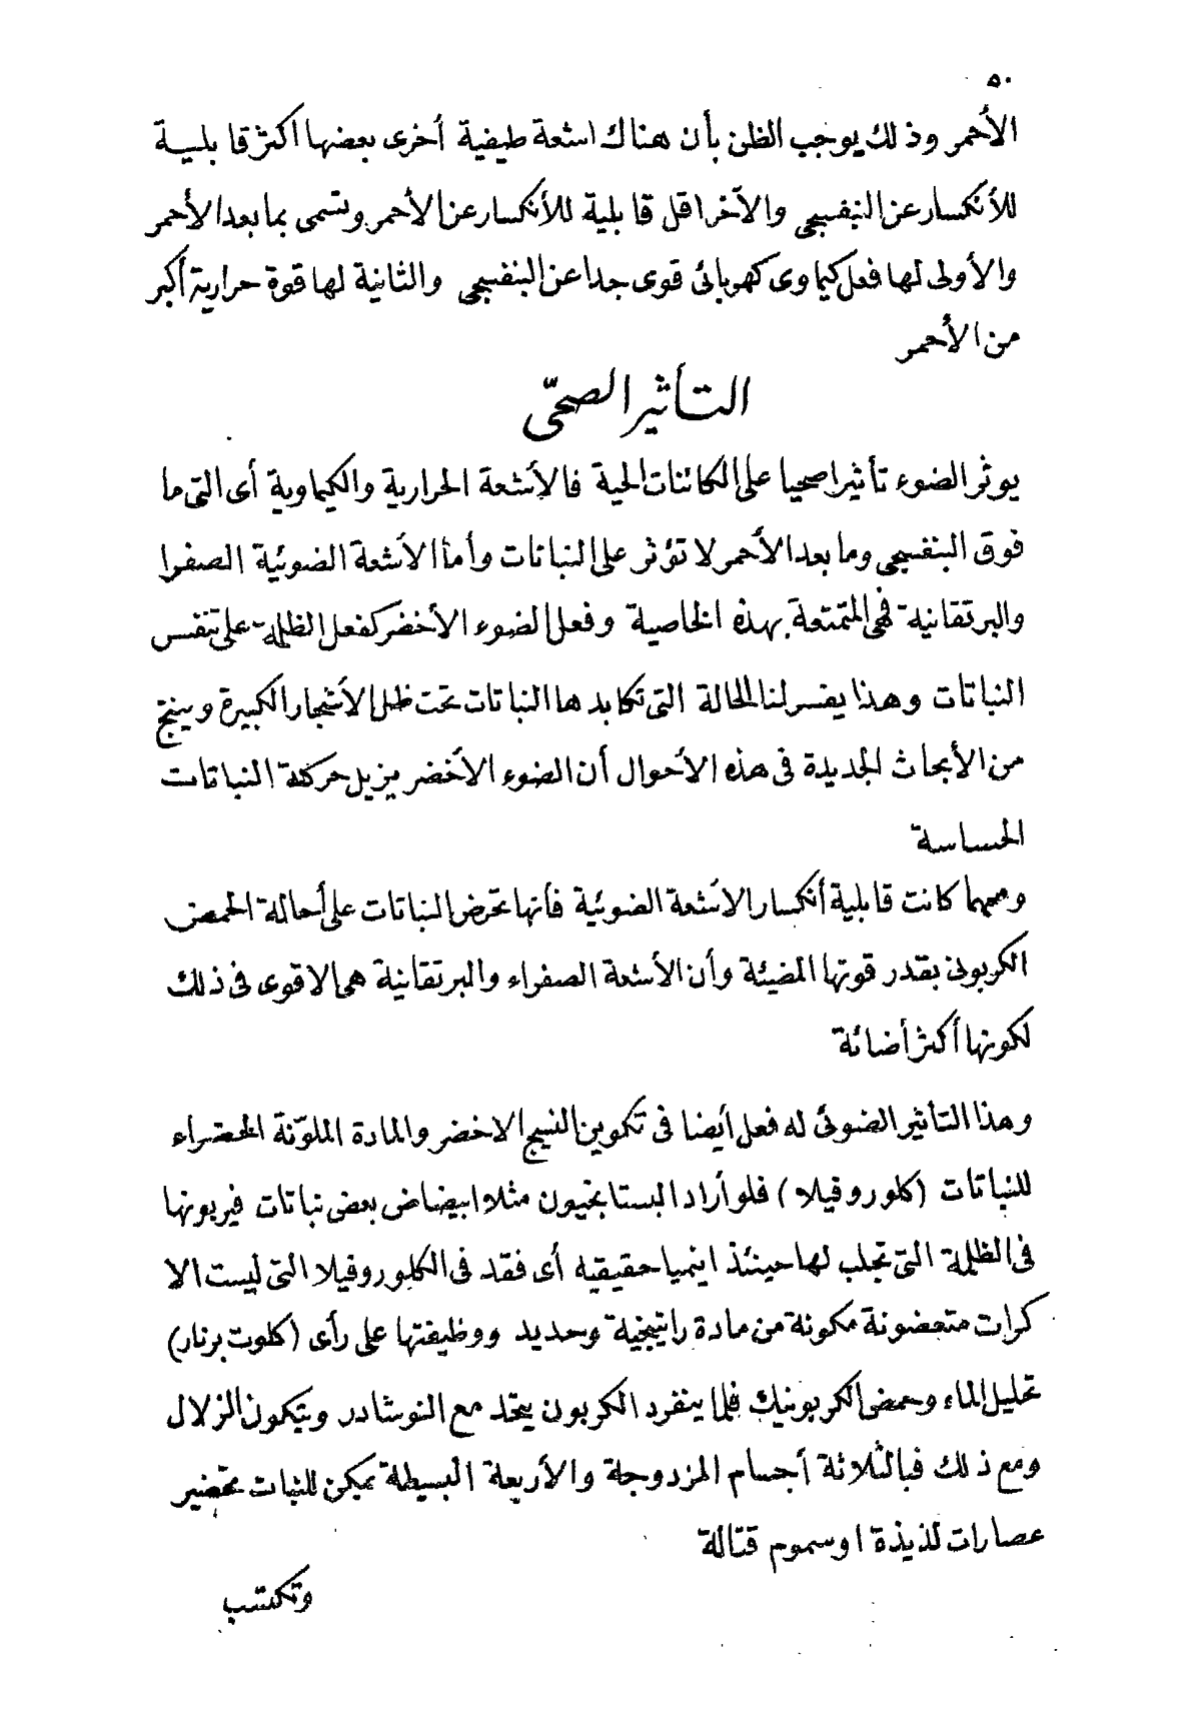 ٥٠
الأحمر وذلك يوجب الظن بأن هناك اشعة طيفية أخرى بعضها اكثرقابلية
للأنكسار عن البنفسجى والآخر اقل قابلية للأنكسار عن الأحمر وتسمى بما بعد الأحمر
والأولى لها فعل كيماوى كهربائى قوى جدا عن البنفسجى والثانية لها قوة حرارية أكبر
من الأحمر
التأثير الصحّى
يوثر الضوء تأثيرا صحيا على الكائنات الحية فالأشعة الحرارية والكيماوية أى التى ما
فوق البنفسجى وما بعد الأحمر لا تؤثر على النباتات وأما الأشعة الضوئية الصفرا
والبرتقانية فهى المتمتعة بهذه الخاصية وفعل الضوء الأخضر كفعل الظلمة على تنفس
النباتات وهذا يفسر لنا الحالة التى تكابدها النباتات تحت ظل الأشجار الكبيرة وينتج
من الأبحاث الجديدة فى هذه الأحوال أن الضوء الأخضر يزيل حركة النباتات
الحساسة
ومهما كانت قابلية أنكسار الأشعة الضوئية فأنها تحرض النباتات على أحالة الحمض
الكربونى بقدر قوتها المضيئة وأن الأشعة الصفراء والبرتقانية هى الاقوى فى ذلك
لكونها أكثر أضائة
وهذا التأثير الضوئى له فعل أيضا فى تكوين النسيج الاخضر والمادة الملوّنة الخضراء
للنباتات (كلوروفيلا) فلو أراد البستانجيون مثلا ابيضاض بعض نباتات فيربونها
فى الظلمة التى تجلب لها حينئذ اينميا حقيقيه أى فقد فى الكلوروفيلا التى ليست الا
كرات متعضونة مكونة من مادة راتينجية وحديد ووظيفتها على رأى (كلوت برنار)
تحليل الماء وحمض الكربونيك فلما ينفرد الكربون يتحد مع النوشادر ويتكون الزلال
ومع ذلك فبالثلاثة أجسام المزدوجة والأربعة البسيطة يمكن للنبات تحضير
عصارات لذيذة اوسموم قتالة
وتكتسب